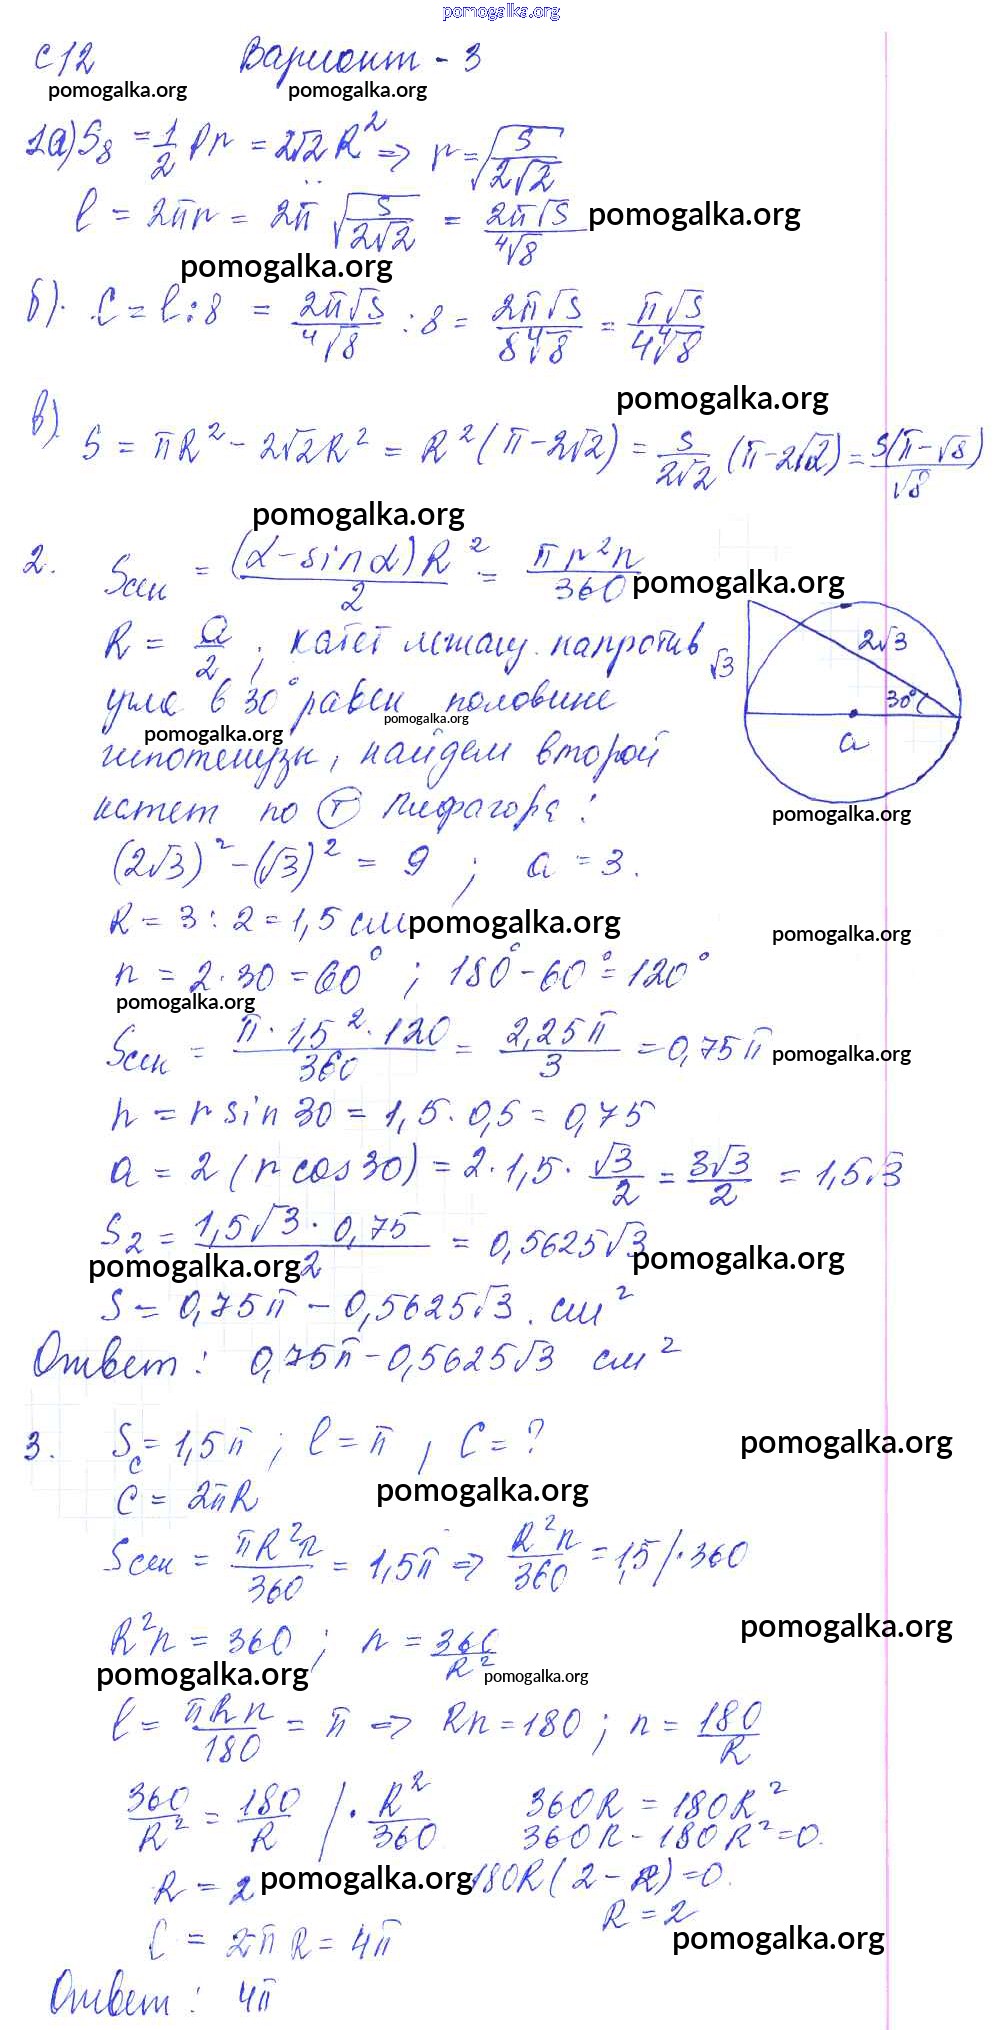 pomogalka.org
С12 Вариант - 3
pomogalka.org pomogalka.org
1а) S₈ = 1/2 Pr = 2√2 R² => r = √(S/(2√2))
l = 2πr = 2π √(S/(2√2)) = 2π√S/⁴√8 pomogalka.org
pomogalka.org
б). C = l : 8 = 2π√S/⁴√8 : 8 = 2π√S/(8⁴√8) = π√S/(4⁴√8)
pomogalka.org
в) S = πR² - 2√2R² = R²(π - 2√2) = S/(2√2) (π - 2√2) = S(π - √8)/√8
pomogalka.org
2. Sсек = (α - sin α)R²/2 = πr²n/360 pomogalka.org
R = a/2 ; катет лежащ. напротив
√3 2√3 30° a
угла в 30° равен половине
pomogalka.org pomogalka.org
гипотенузы, найдем второй
катет по Т Пифагора :
pomogalka.org
(2√3)² - (√3)² = 9 ; a = 3.
R = 3 : 2 = 1,5 см pomogalka.org pomogalka.org
n = 2 · 30 = 60° ; 180° - 60° = 120°
pomogalka.org
Sсек = π · 1,5² · 120/360 = 2,25π/3 = 0,75π pomogalka.org
h = r sin 30 = 1,5 · 0,5 = 0,75
a = 2 (r cos 30) = 2 · 1,5 · √3/2 = 3√3/2 = 1,5√3
S₂ = 1,5√3 · 0,75/2 = 0,5625√3
pomogalka.org pomogalka.org
S = 0,75π - 0,5625√3 . см²
Ответ : 0,75π - 0,5625√3 см²
3. Sс = 1,5π ; l = π , C = ? pomogalka.org
C = 2πR pomogalka.org
Sсек = πR²n/360 = 1,5π => R²n/360 = 1,5 / · 360
R²n = 360 ; n = 360/R² pomogalka.org
pomogalka.org pomogalka.org
l = πRn/180 = π => Rn = 180 ; n = 180/R
360/R² = 180/R / · R²/360 360R = 180R²
360R - 180R² = 0.
R = 2 pomogalka.org 180R(2 - R) = 0.
R = 2
C = 2πR = 4π pomogalka.org
Ответ : 4π